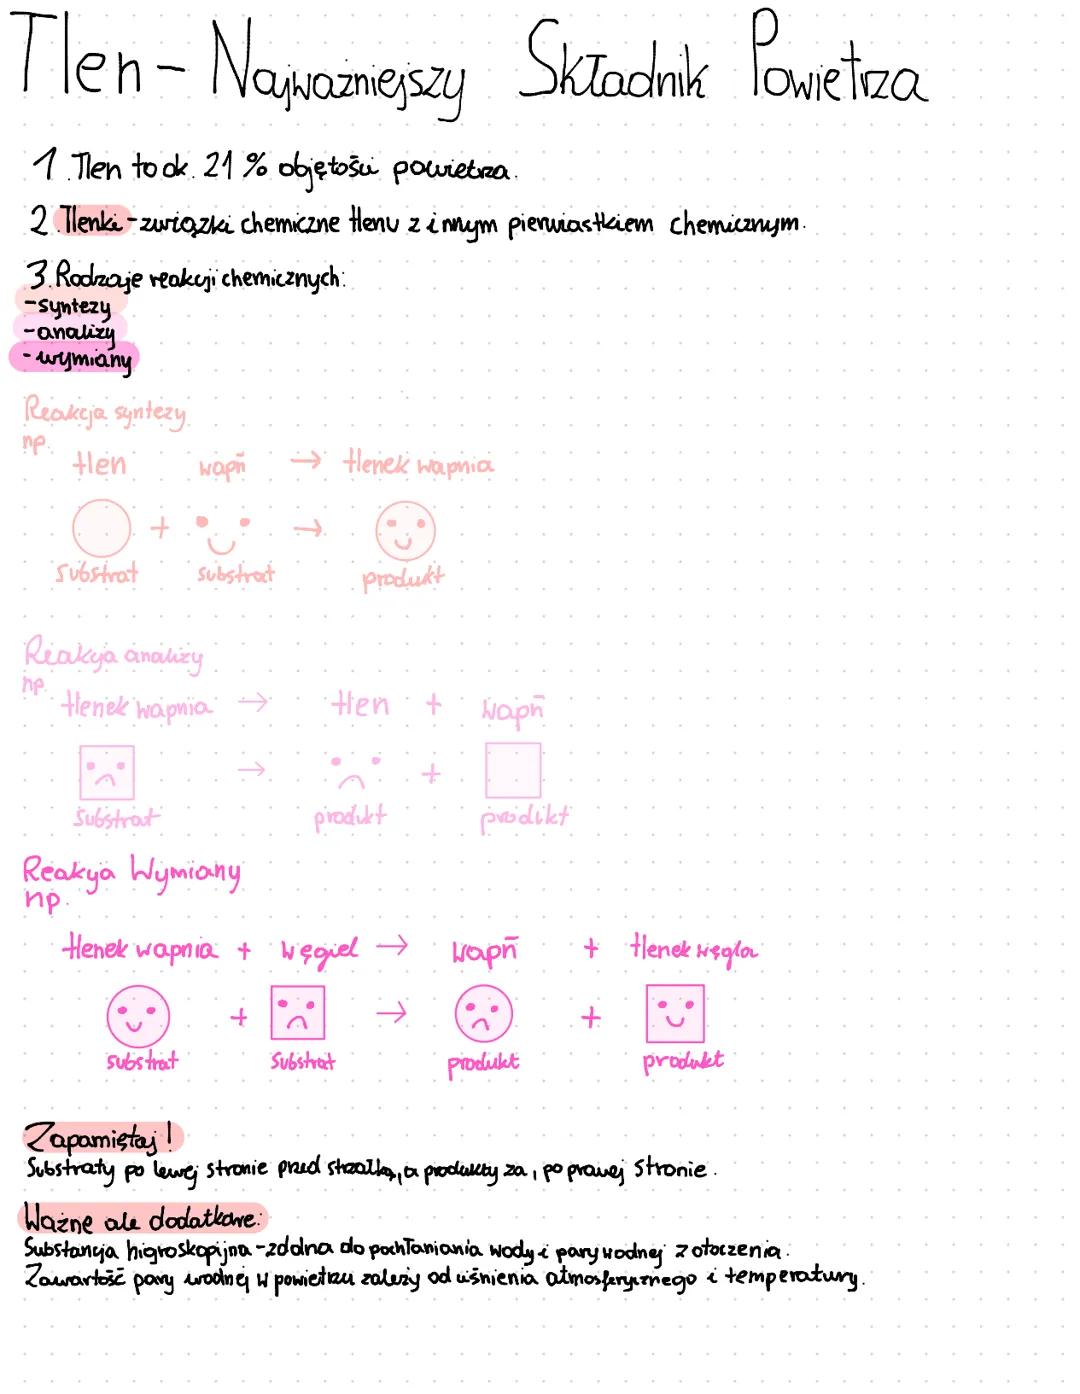 Tlen - Najważniejszy Składnik Powietrza
1. Tlen to ok. 21% objętości powietrza.
2. Tlenki - związki chemiczne tlenu z innym pierwiastkiem chemicznym.
3. Rodzaje reakcji chemicznych:
- syntezy
- analizy
- wymiany
Reakcja syntezy
np.
tlen wapń → tlenek wapnia
+ →
substrat substrat produkt
Reakcja analizy
np.
tlenek wapnia → tlen + wapń
→ +
substrat produkt produkt
Reakcja Wymiany
np.
tlenek wapnia + węgiel → wapń + tlenek węgla
+ → +
substrat substrat produkt produkt
Zapamiętaj!
Substraty po lewej stronie przed strzałką, a produkty za, po prawej stronie.
Ważne ale dodatkowe:
Substancja higroskopijna - zdolna do pochłaniania wody i pary wodnej z otoczenia.
Zawartość pary wodnej w powietrzu zależy od ciśnienia atmosferycznego i temperatury.